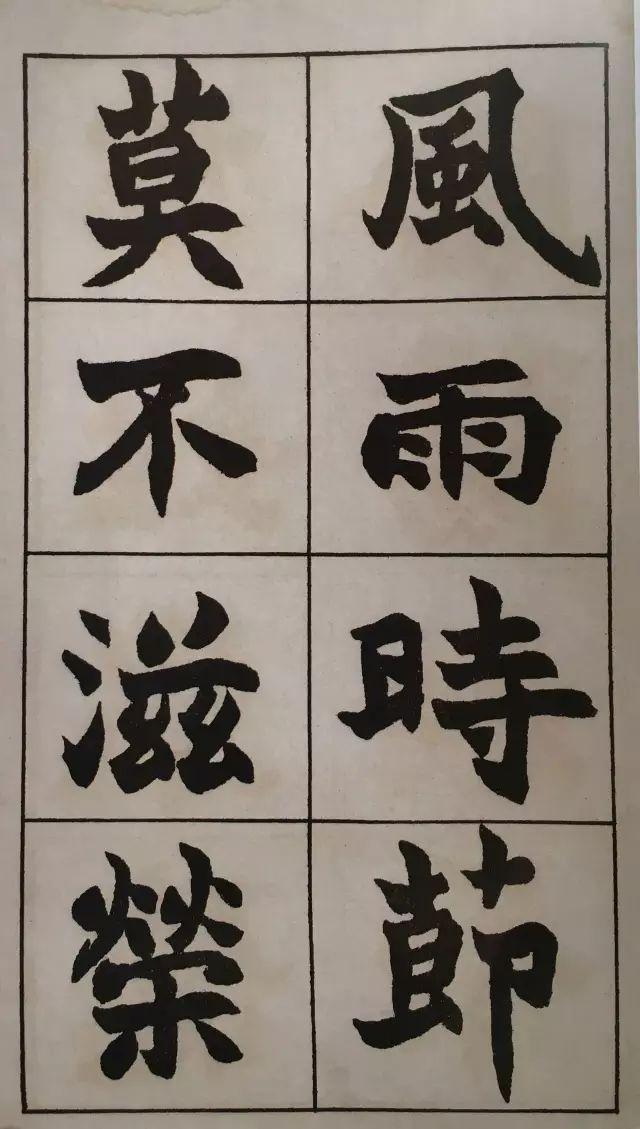 風雨時節
莫不滋榮